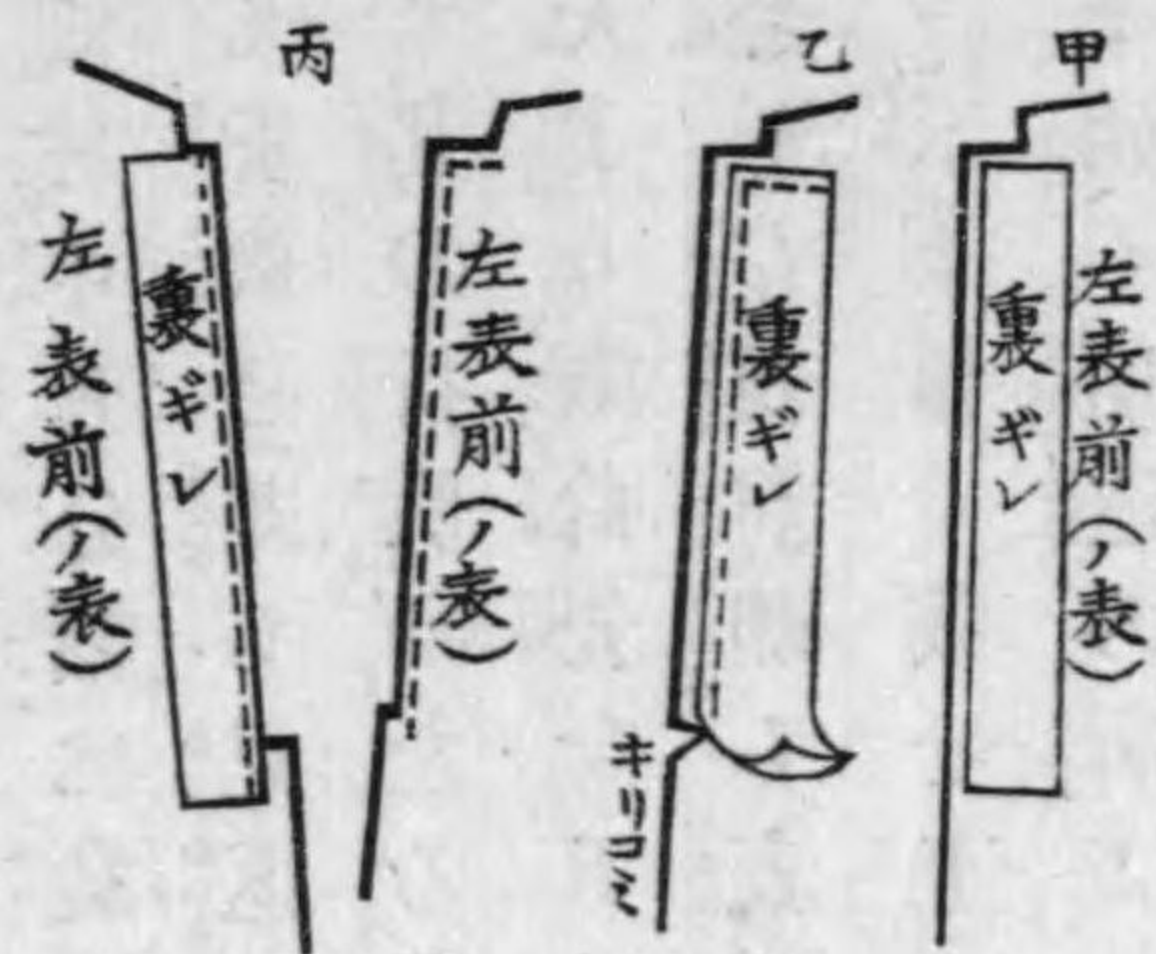 甲
左表前(ノ表)
裏ギレ
乙
裏ギレ
キリコミ
丙
左表前(ノ表)
裏ギレ
左表前(ノ表)